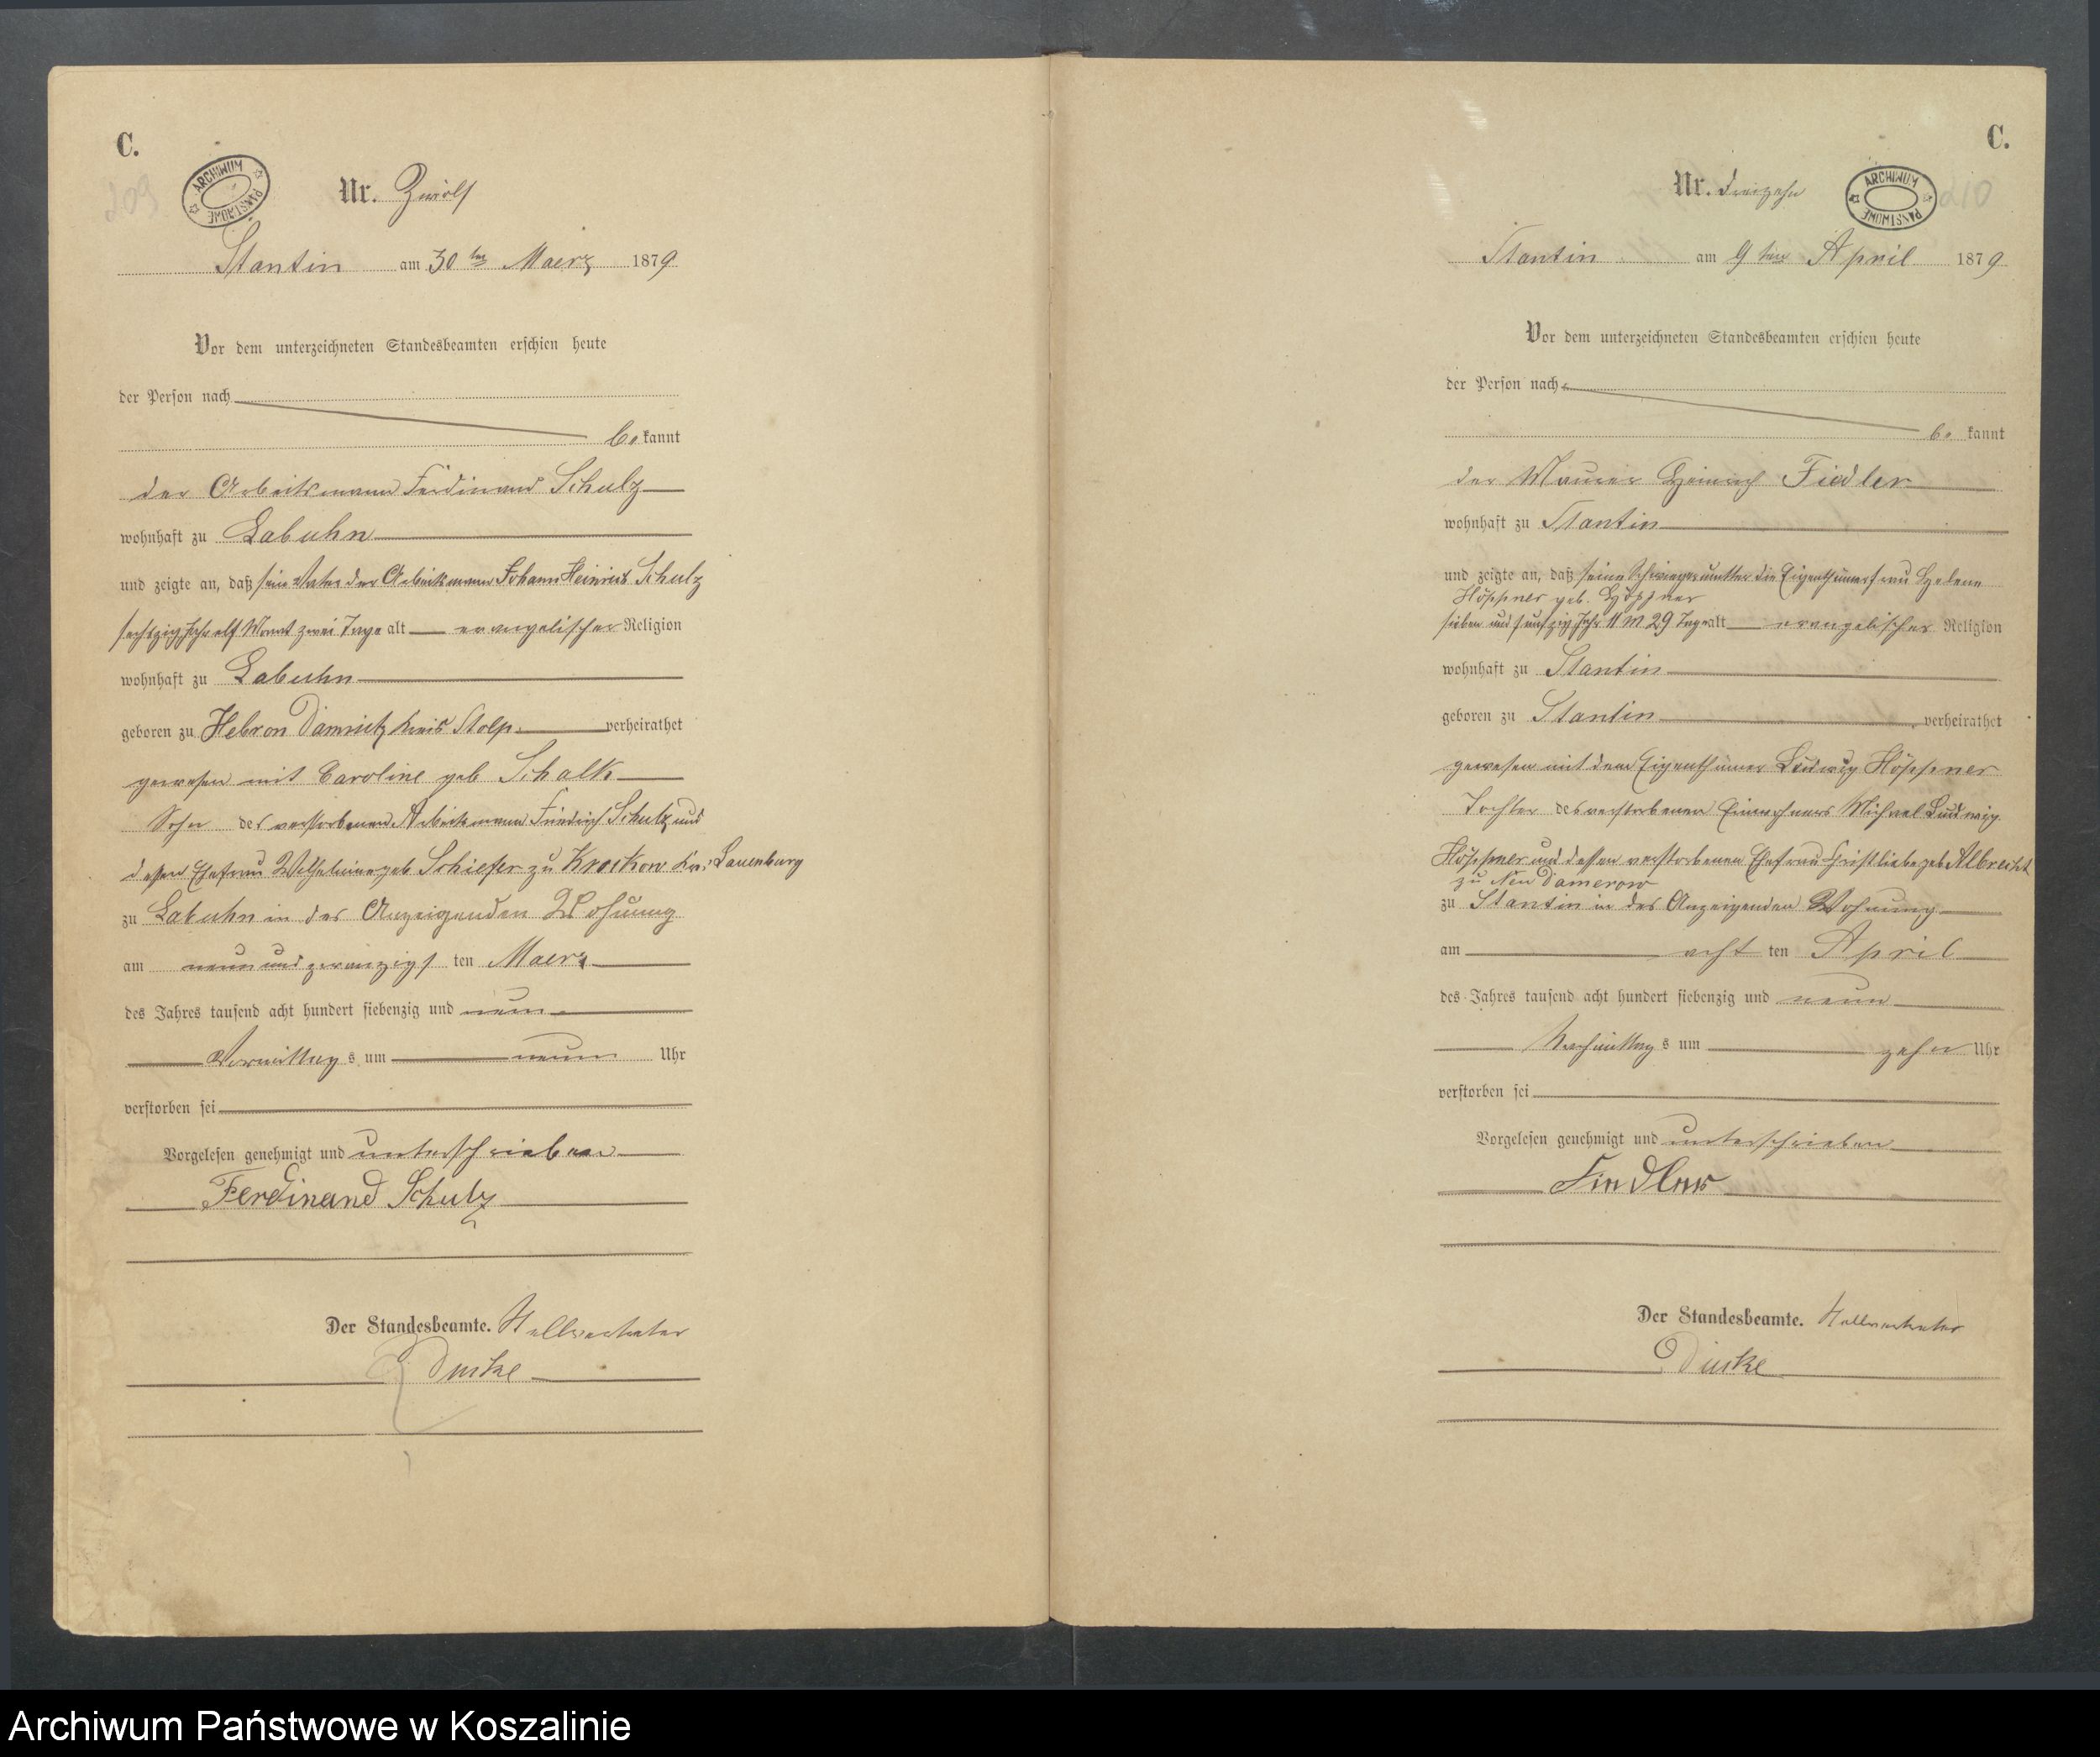 C.
209
ARCHIWUM PAŃSTWOWE
Nr. Zwölf
Stantin am 30ten Maerz 1879
Vor dem unterzeichneten Standesbeamten erschien heute
der Person nach
be kannt
der Arbeitsmann Ferdinand Schulz
wohnhaft zu Labuhn
und zeigte an, daß sein Vater der Arbeitsmann Johann Heinrich Schulz
sechszig Jahr elf Monat zwei Tage alt evangelischer Religion
wohnhaft zu Labuhn
geboren zu Hebron Damnitz Kreis Stolp verheirathet
gewesen mit Caroline geb Schalk
Sohn des verstorbenen Arbeitsmann Friedrich Schulz und
dessen Ehefrau Wilhelmine geb Schiefer zu Krockow Kr. Lauenburg
zu Labuhn in des Anzeigenden Wohnung
am neun und zwanzigs ten Maerz
des Jahres tausend acht hundert siebenzig und neun
Vormittag s um neun Uhr
verstorben sei
Vorgelesen genehmigt und unterschrieben
Ferdinand Schulz
Der Standesbeamte. Stellvertreter
C.
210
ARCHIWUM PAŃSTWOWE
Nr. dreizehn
Stantin am 9ten April 1879
Vor dem unterzeichneten Standesbeamten erschien heute
der Person nach
be kannt
der Maurer Heinrich Fiedler
wohnhaft zu Stantin
und zeigte an, daß seine Schwiegermutter die Eigenthümerfrau Helene
Höppner geb. Höppner
sieben und funfzig Jahr 11 M 29 Tage alt evangelischer Religion
wohnhaft zu Stantin
geboren zu Stantin verheirathet
gewesen mit dem Eigenthümer Ludwig Höppner
Tochter des verstorbenen Einwohners Michael Ludwig
Höppner und dessen verstorbenen Ehefrau Christliebe geb Albrecht
zu Neu Damerow
zu Stantin in des Anzeigenden Wohnung
am acht ten April
des Jahres tausend acht hundert siebenzig und neun
Nachmittag s um zehn Uhr
verstorben sei
Vorgelesen genehmigt und unterschrieben
Fiedler
Der Standesbeamte. Stellvertreter
Archiwum Państwowe w Koszalinie